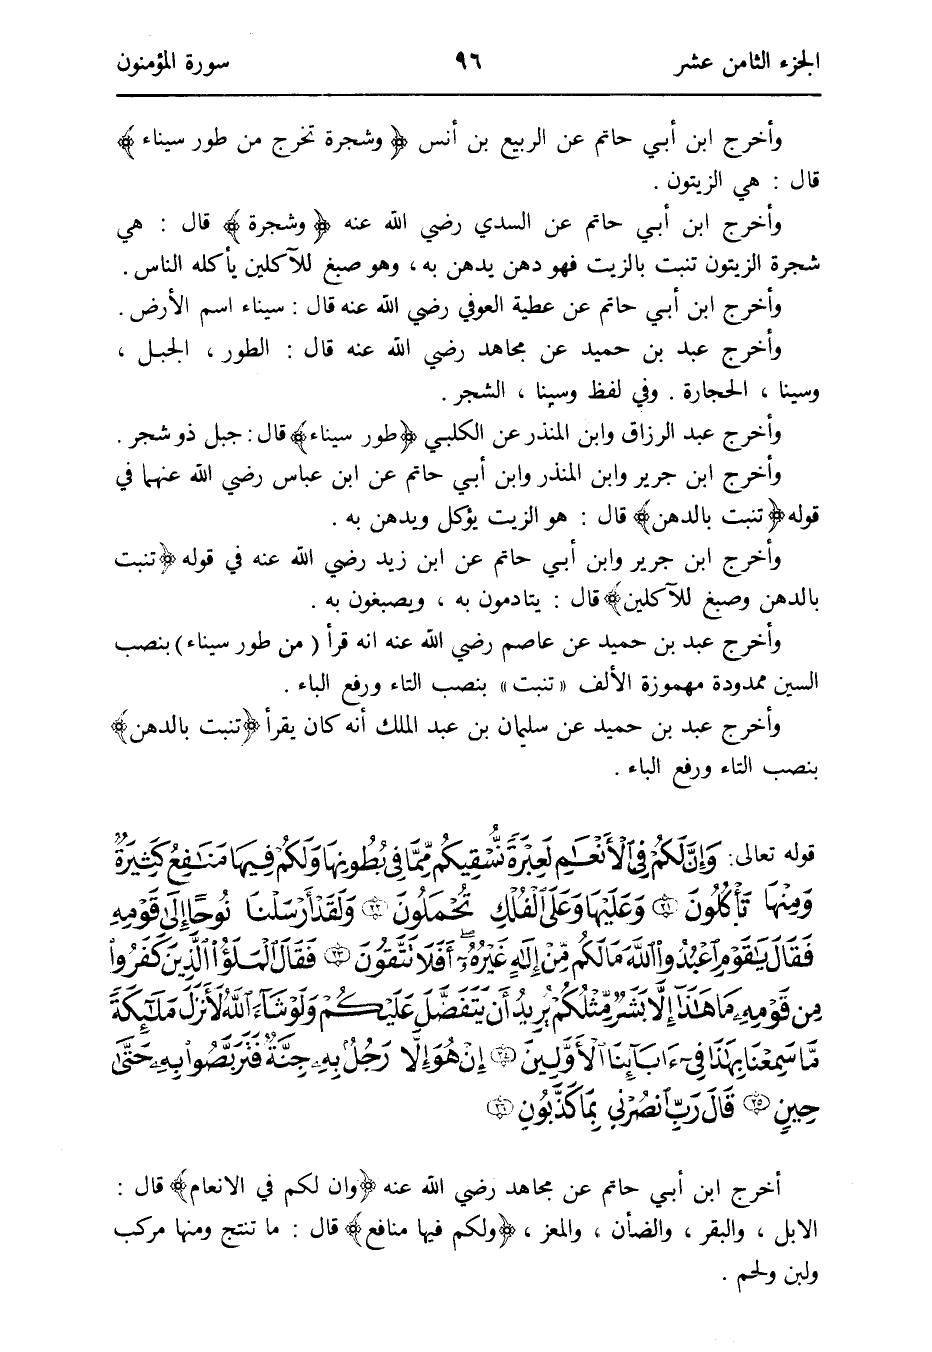 الجزء الثامن عشر ٩٦ سورة المؤمنون
وأخرج ابن أبي حاتم عن الربيع بن أنس ﴿ وشجرة تخرج من طور سيناء ﴾
قال : هي الزيتون .
وأخرج ابن أبي حاتم عن السدي رضي الله عنه ﴿ وشجرة ﴾ قال : هي
شجرة الزيتون تنبت بالزيت فهو دهن يدهن به ، وهو صبغ للآكلين يأكله الناس .
وأخرج ابن أبي حاتم عن عطية العوفي رضي الله عنه قال : سيناء اسم الأرض .
وأخرج عبد بن حميد عن مجاهد رضي الله عنه قال : الطور ، الجبل ،
وسينا ، الحجارة . وفي لفظ وسينا ، الشجر .
وأخرج عبد الرزاق وابن المنذر عن الكلبي ﴿طور سيناء﴾ قال : جبل ذو شجر .
وأخرج ابن جرير وابن المنذر وابن أبي حاتم عن ابن عباس رضي الله عنهما في
قوله ﴿تنبت بالدهن﴾ قال : هو الزيت يؤكل ويدهن به .
وأخرج ابن جرير وابن أبي حاتم عن ابن زيد رضي الله عنه في قوله ﴿تنبت
بالدهن وصبغ للآكلين﴾ قال : يتادمون به ، ويصبغون به .
وأخرج عبد بن حميد عن عاصم رضي الله عنه انه قرأ ( من طور سيناء ) بنصب
السين ممدودة مهموزة الألف « تنبت » بنصب التاء ورفع الباء .
وأخرج عبد بن حميد عن سليمان بن عبد الملك أنه كان يقرأ ﴿تنبت بالدهن﴾
بنصب التاء ورفع الباء .
قوله تعالى: وَإِنَّ لَكُمْ فِي ٱلْأَنْعَٰمِ لَعِبْرَةً نُّسْقِيكُم مِّمَّا فِي بُطُونِهَا وَلَكُمْ فِيهَا مَنَٰفِعُ كَثِيرَةٌ
وَمِنْهَا تَأْكُلُونَ ﴿٢١﴾ وَعَلَيْهَا وَعَلَى ٱلْفُلْكِ تُحْمَلُونَ ﴿٢٢﴾ وَلَقَدْ أَرْسَلْنَا نُوحًا إِلَىٰ قَوْمِهِ
فَقَالَ يَٰقَوْمِ ٱعْبُدُوا۟ ٱللَّهَ مَا لَكُم مِّنْ إِلَٰهٍ غَيْرُهُۥٓ أَفَلَا تَتَّقُونَ ﴿٢٣﴾ فَقَالَ ٱلْمَلَؤُا۟ ٱلَّذِينَ كَفَرُوا۟
مِن قَوْمِهِۦ مَا هَٰذَآ إِلَّا بَشَرٌ مِّثْلُكُمْ يُرِيدُ أَن يَتَفَضَّلَ عَلَيْكُمْ وَلَوْ شَآءَ ٱللَّهُ لَأَنزَلَ مَلَٰٓئِكَةً
مَّا سَمِعْنَا بِهَٰذَا فِيٓ ءَابَآئِنَا ٱلْأَوَّلِينَ ﴿٢٤﴾ إِنْ هُوَ إِلَّا رَجُلٌۢ بِهِۦ جِنَّةٌ فَتَرَبَّصُوا۟ بِهِۦ حَتَّىٰ
حِينٍ ﴿٢٥﴾ قَالَ رَبِّ ٱنصُرْنِي بِمَا كَذَّبُونِ ﴿٢٦﴾
أخرج ابن أبي حاتم عن مجاهد رضي الله عنه ﴿وان لكم في الانعام﴾ قال :
الابل ، والبقر ، والضأن ، والمعز ، ﴿ولكم فيها منافع﴾ قال : ما تنتج ومنها مركب
ولبن ولحم .